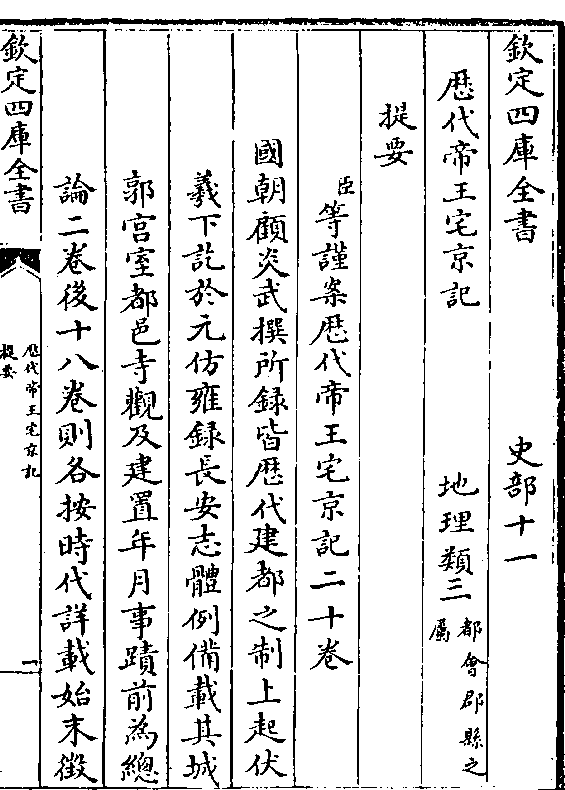 欽定四庫全書　　　史部十一
歴代帝王宅京記　　地理類三都會郡縣之屬
提要
臣等謹案歴代帝王宅京記二十卷
國朝顧炎武撰所録皆歴代建都之制上起伏
羲下訖於元仿雍録長安志體例備載其城
郭宫室都邑寺觀及建置年月事蹟前為總
論二卷後十八卷則各按時代詳載始末徴
欽定四庫全書
歴代帝王宅京記
提要
一